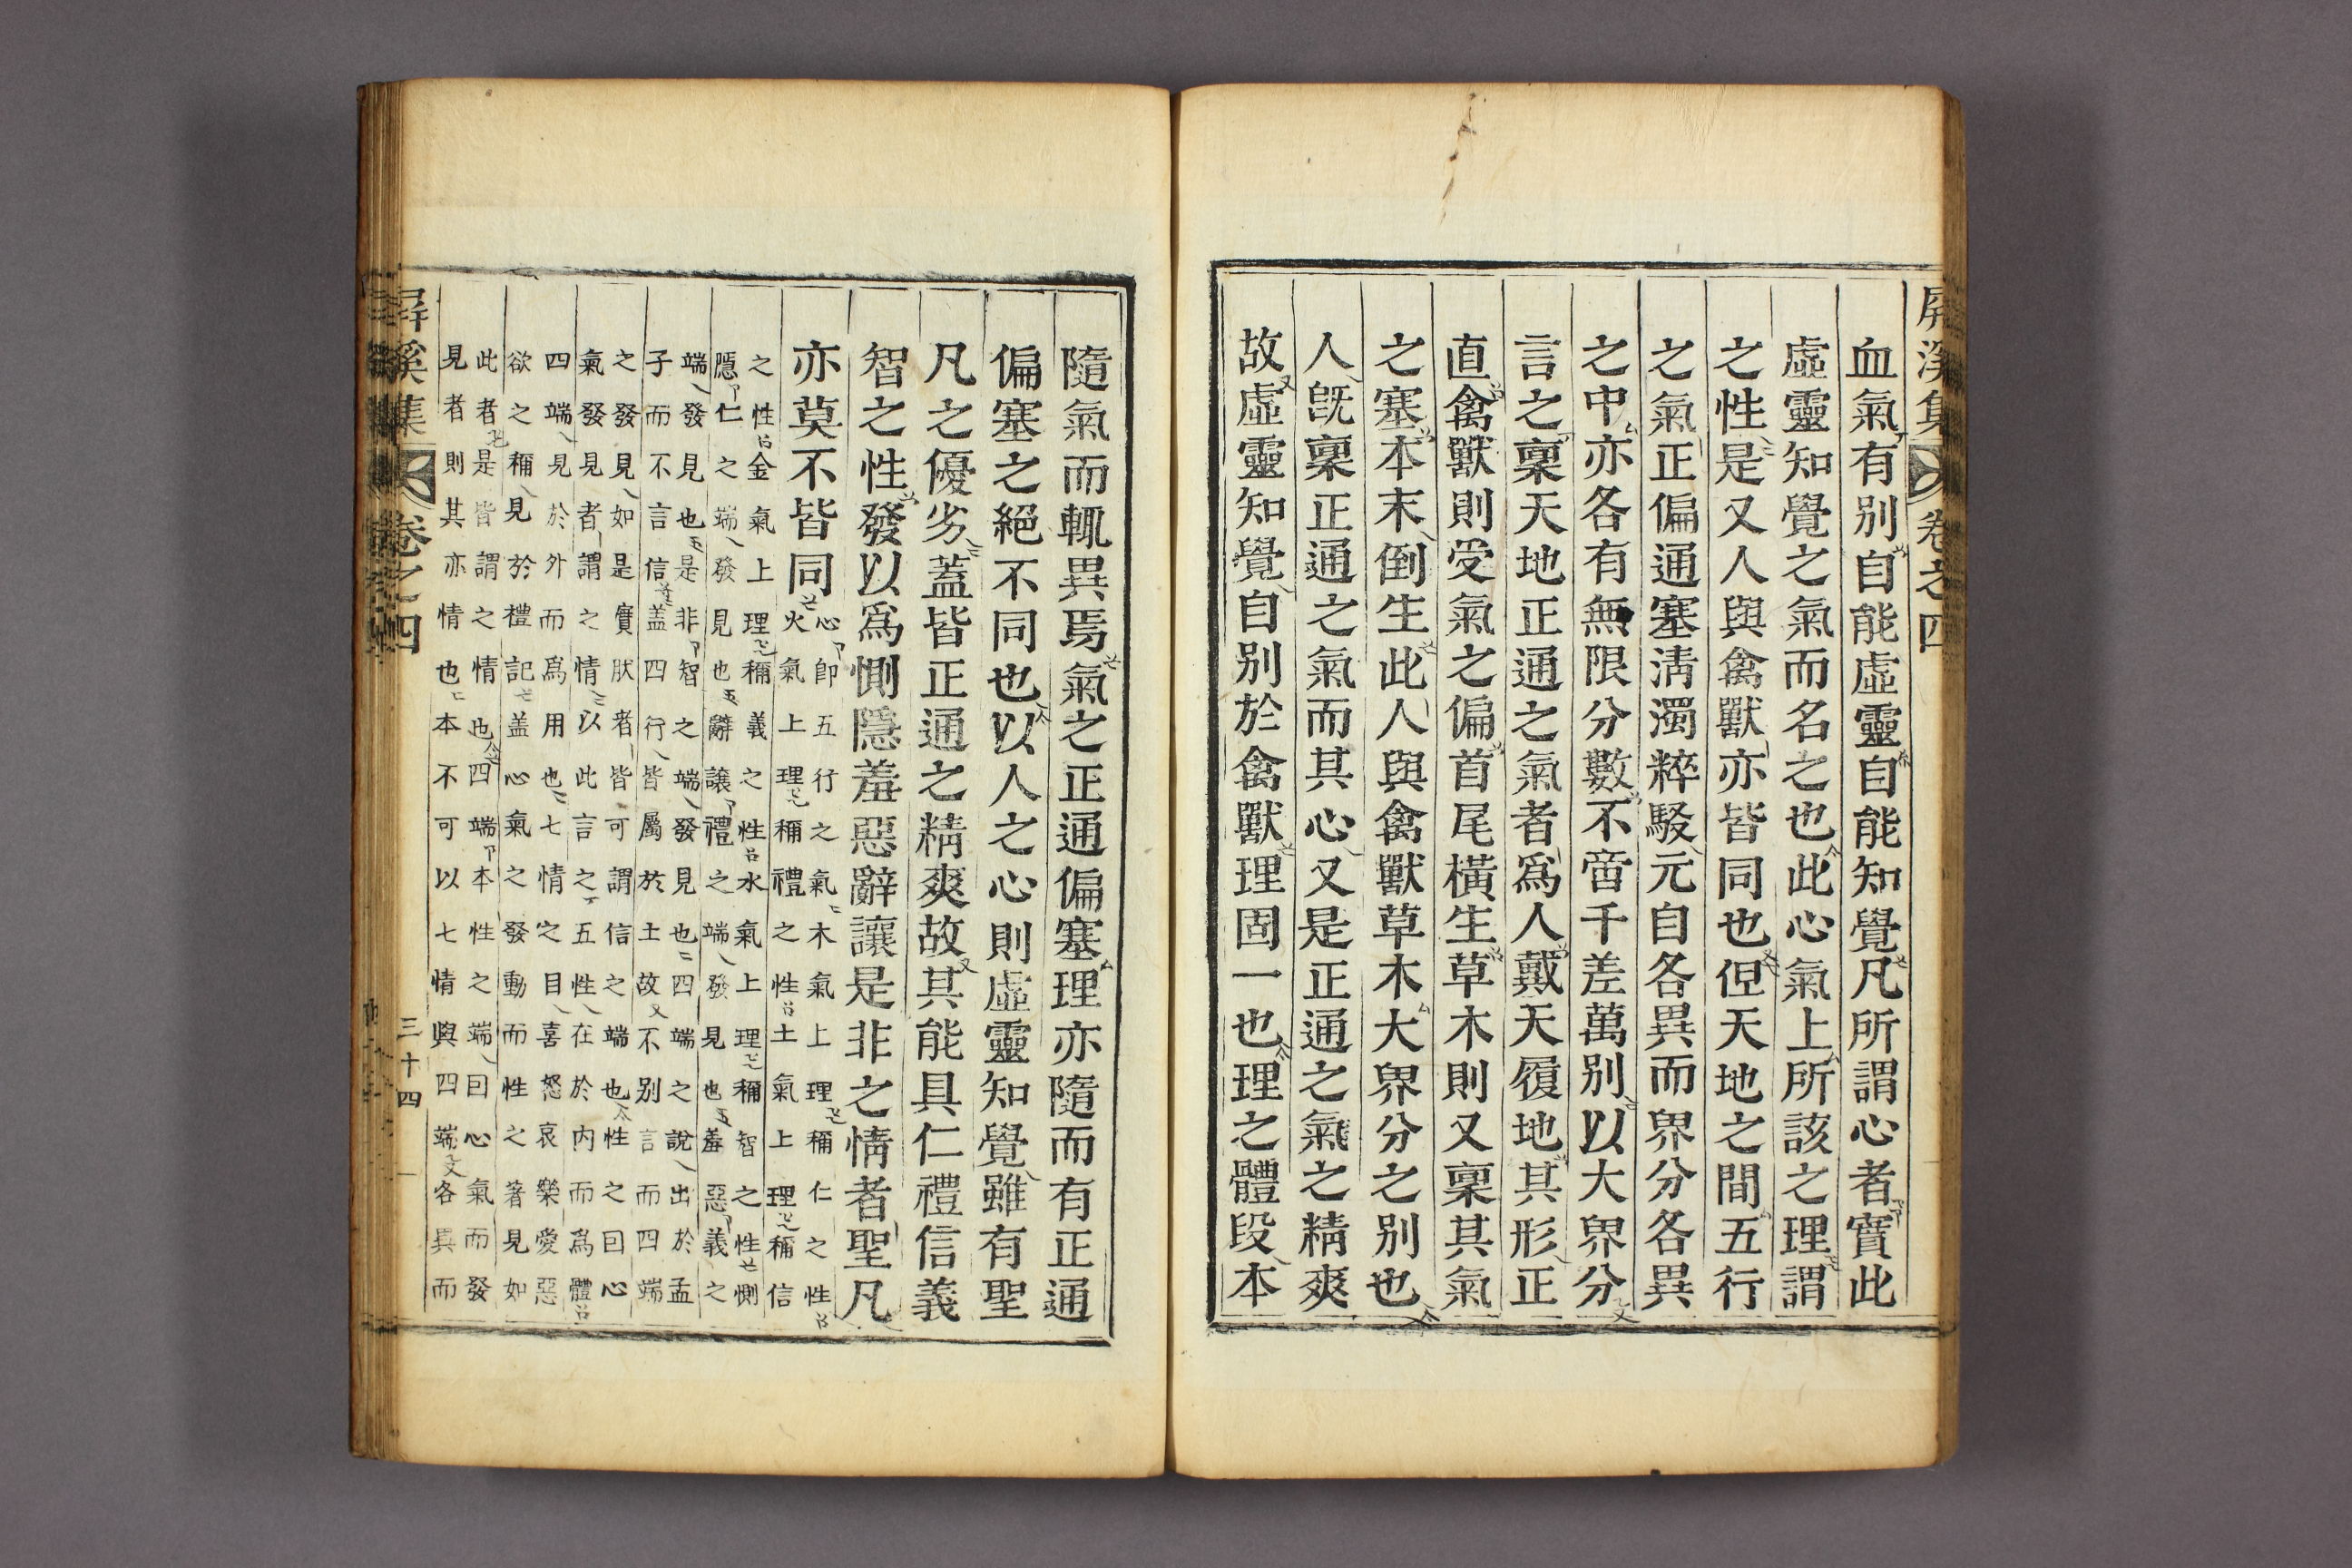 屛溪集 卷之四
血氣有別自能虛靈自能知覺凡所謂心者實此
虛靈知覺之氣而名之也此心氣上所該之理謂
之性是又人與禽獸亦皆同也但天地之間五行
之氣正偏通塞淸濁粹駁元自各異而界分各異
之中亦各有無限分數不啻千差萬別以大界分
言之稟天地正通之氣者爲人戴天履地其形正
直禽獸則受氣之偏首尾橫生草木則又稟其氣
之塞本末倒生此人與禽獸草木大界分之別也
人旣稟正通之氣而其心又是正通之氣之精爽
故虛靈知覺自別於禽獸理固一也理之體段本
隨氣而輒異焉氣之正通偏塞理亦隨而有正通
偏塞之絕不同也以人之心則虛靈知覺雖有聖
凡之優劣蓋皆正通之精爽故其能具仁禮信義
智之性發以爲惻隱羞惡辭讓是非之情者聖凡
亦莫不皆同
心卽五行之氣木氣上理稱仁之性
火氣上理稱禮之性土氣上理稱信
之性金氣上理稱義之性水氣上理稱智之性惻
隱仁之端發見也辭讓禮之端發見也羞惡義之
端發見也是非智之端發見也四端之說出於孟
子而不言信蓋四行皆屬於土故不別言而四端
之發見如是實狀者皆可謂信之端也性之回心
氣發見者謂之情以此言之五性在於內而爲體
四端見於外而爲用也七情之目喜怒哀樂愛惡
欲之稱見於禮記蓋心氣之發動而性之著見如
此者是皆謂之情也四端本性之端回心氣而發
見者則其亦情也本不可以七情與四端各異而
屛溪集 卷之四 三十四